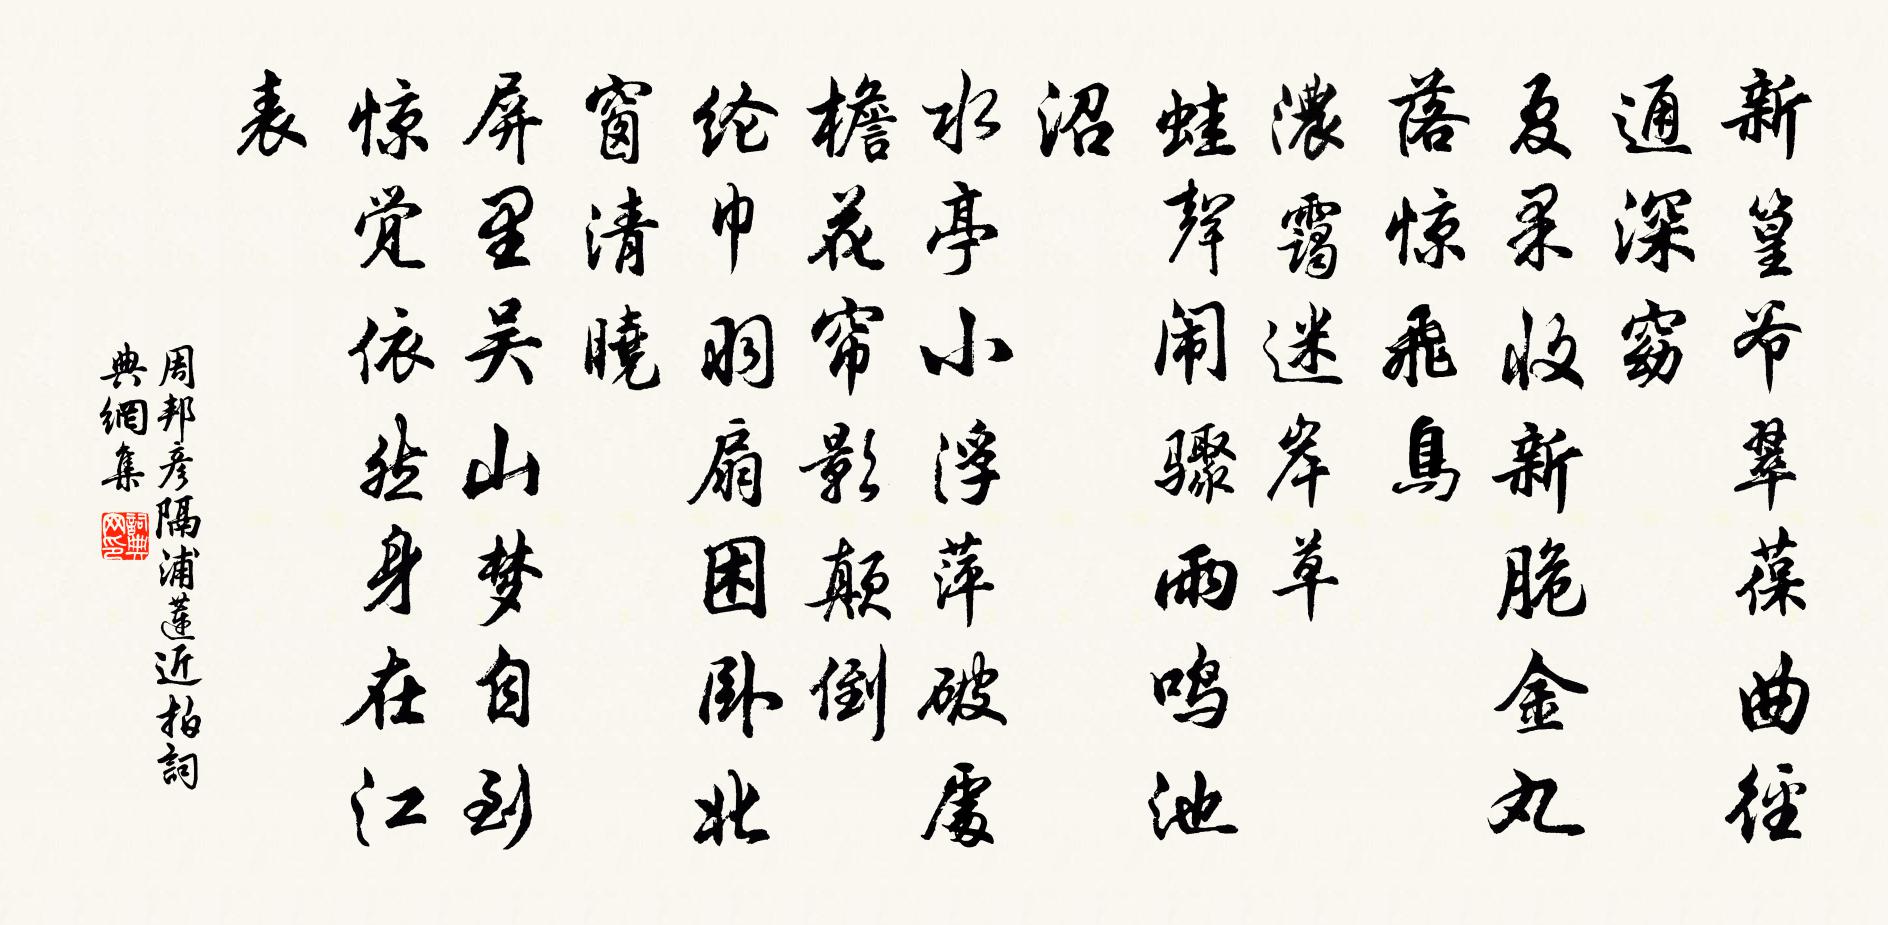 新篁爷翠葆曲径
通深窈
夏果收新脆金丸
落惊飛鳥
濃靄迷岸草
蛙聲闹骤雨鸣池
沼
水亭小浮萍破處
檐花帘影颠倒
纶巾羽扇困卧北
窗清曉
屏里吴山梦自到
惊觉依然身在江
表
周邦彦隔浦蓮近拍詞
典網集
詞典网印